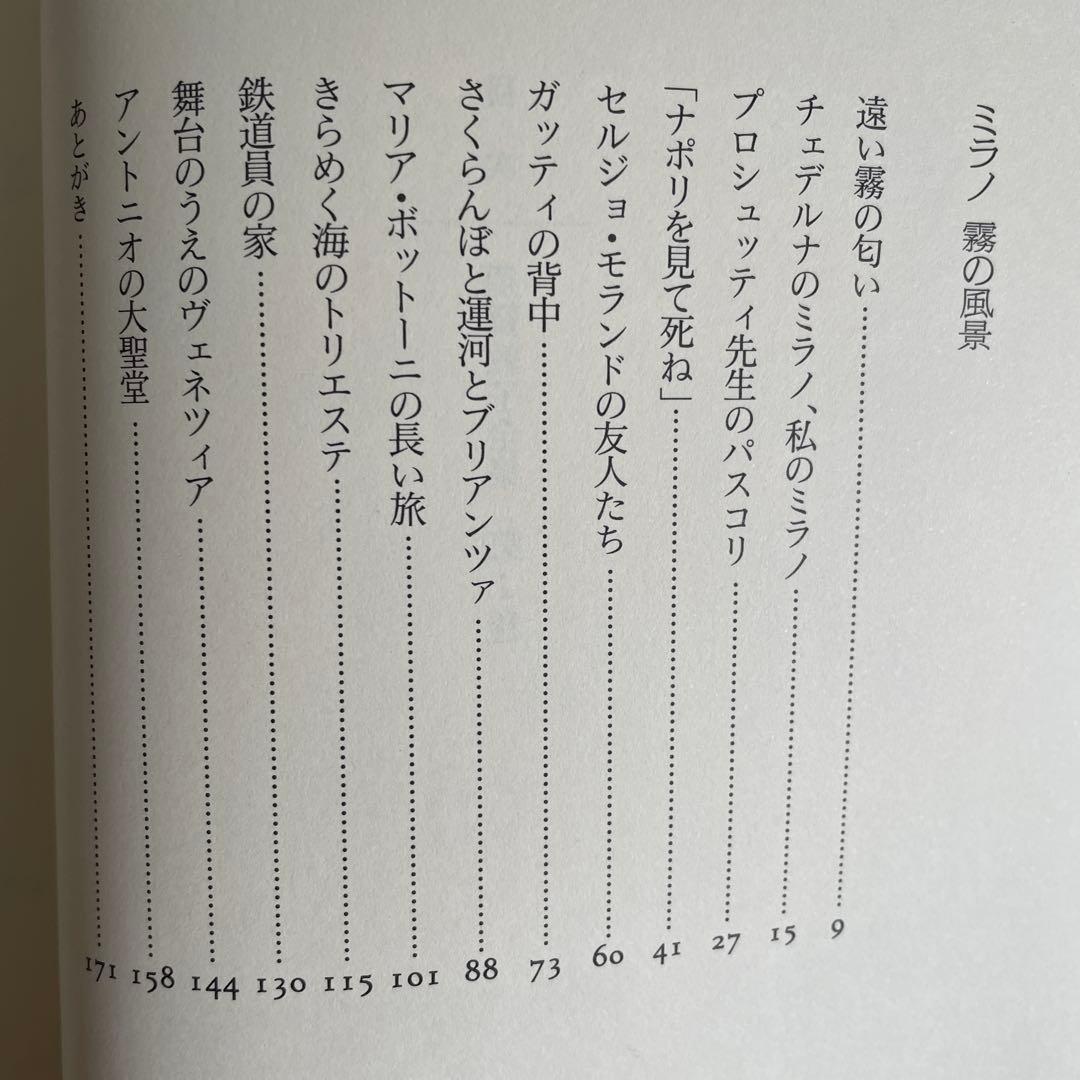 ミラノ 霧の風景
遠い霧の匂い……………………9
チェデルナのミラノ、私のミラノ……………………15
プロシュッティ先生のパスコリ……………………27
「ナポリを見て死ね」……………………41
セルジョ・モランドの友人たち……………………60
ガッティの背中……………………73
さくらんぼと運河とブリアンツァ……………………88
マリア・ボットーニの長い旅……………………101
きらめく海のトリエステ……………………115
鉄道員の家……………………130
舞台のうえのヴェネツィア……………………144
アントニオの大聖堂……………………158
あとがき……………………171